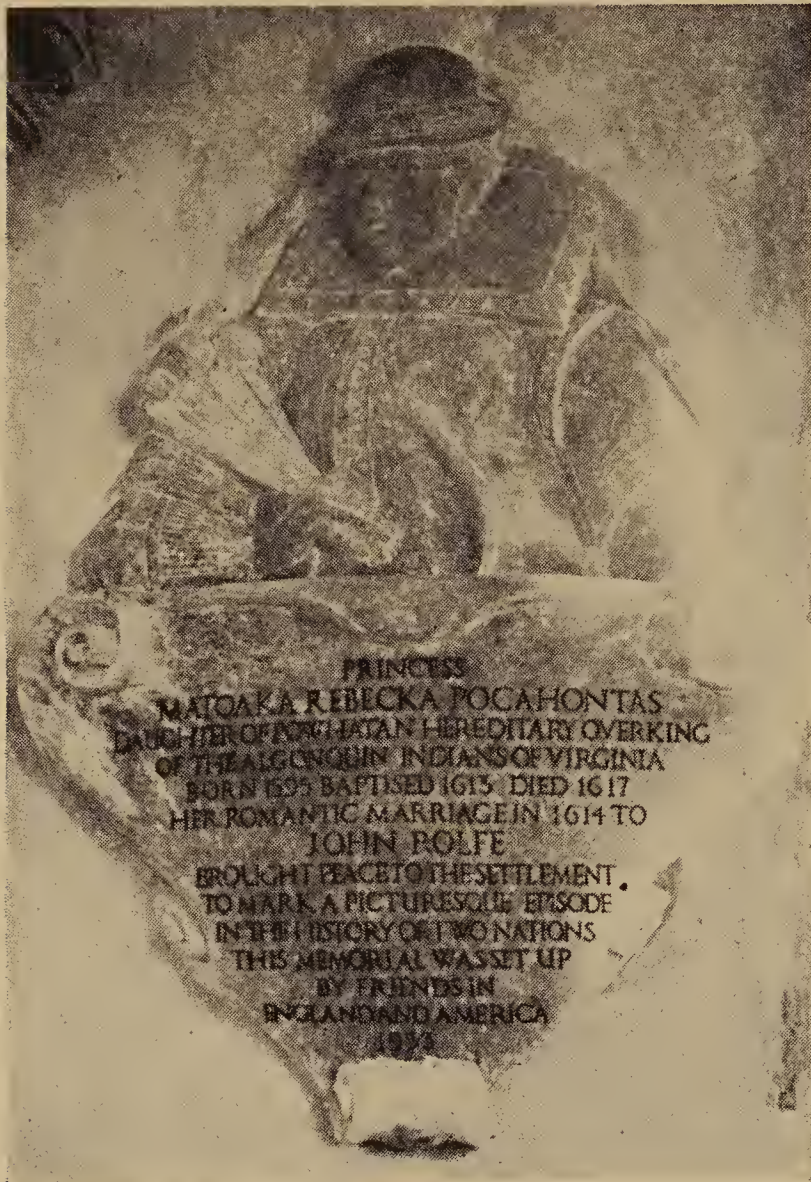 PRINCESS
MATOAKA REBECKA POCAHONTAS
DAUGHTER OF POWHATAN HEREDITARY OVERKING
OF THE ALGONQUIN INDIANS OF VIRGINIA
BORN 1595 BAPTISED 1613 DIED 1617
HER ROMANTIC MARRIAGE IN 1614 TO
JOHN ROLFE
BROUGHT PEACE TO THE SETTLEMENT
TO MARK A PICTURESQUE EPISODE
IN THE HISTORY OF TWO NATIONS
THIS MEMORIAL WAS SET UP
BY FRIENDS IN
ENGLAND AND AMERICA
1933